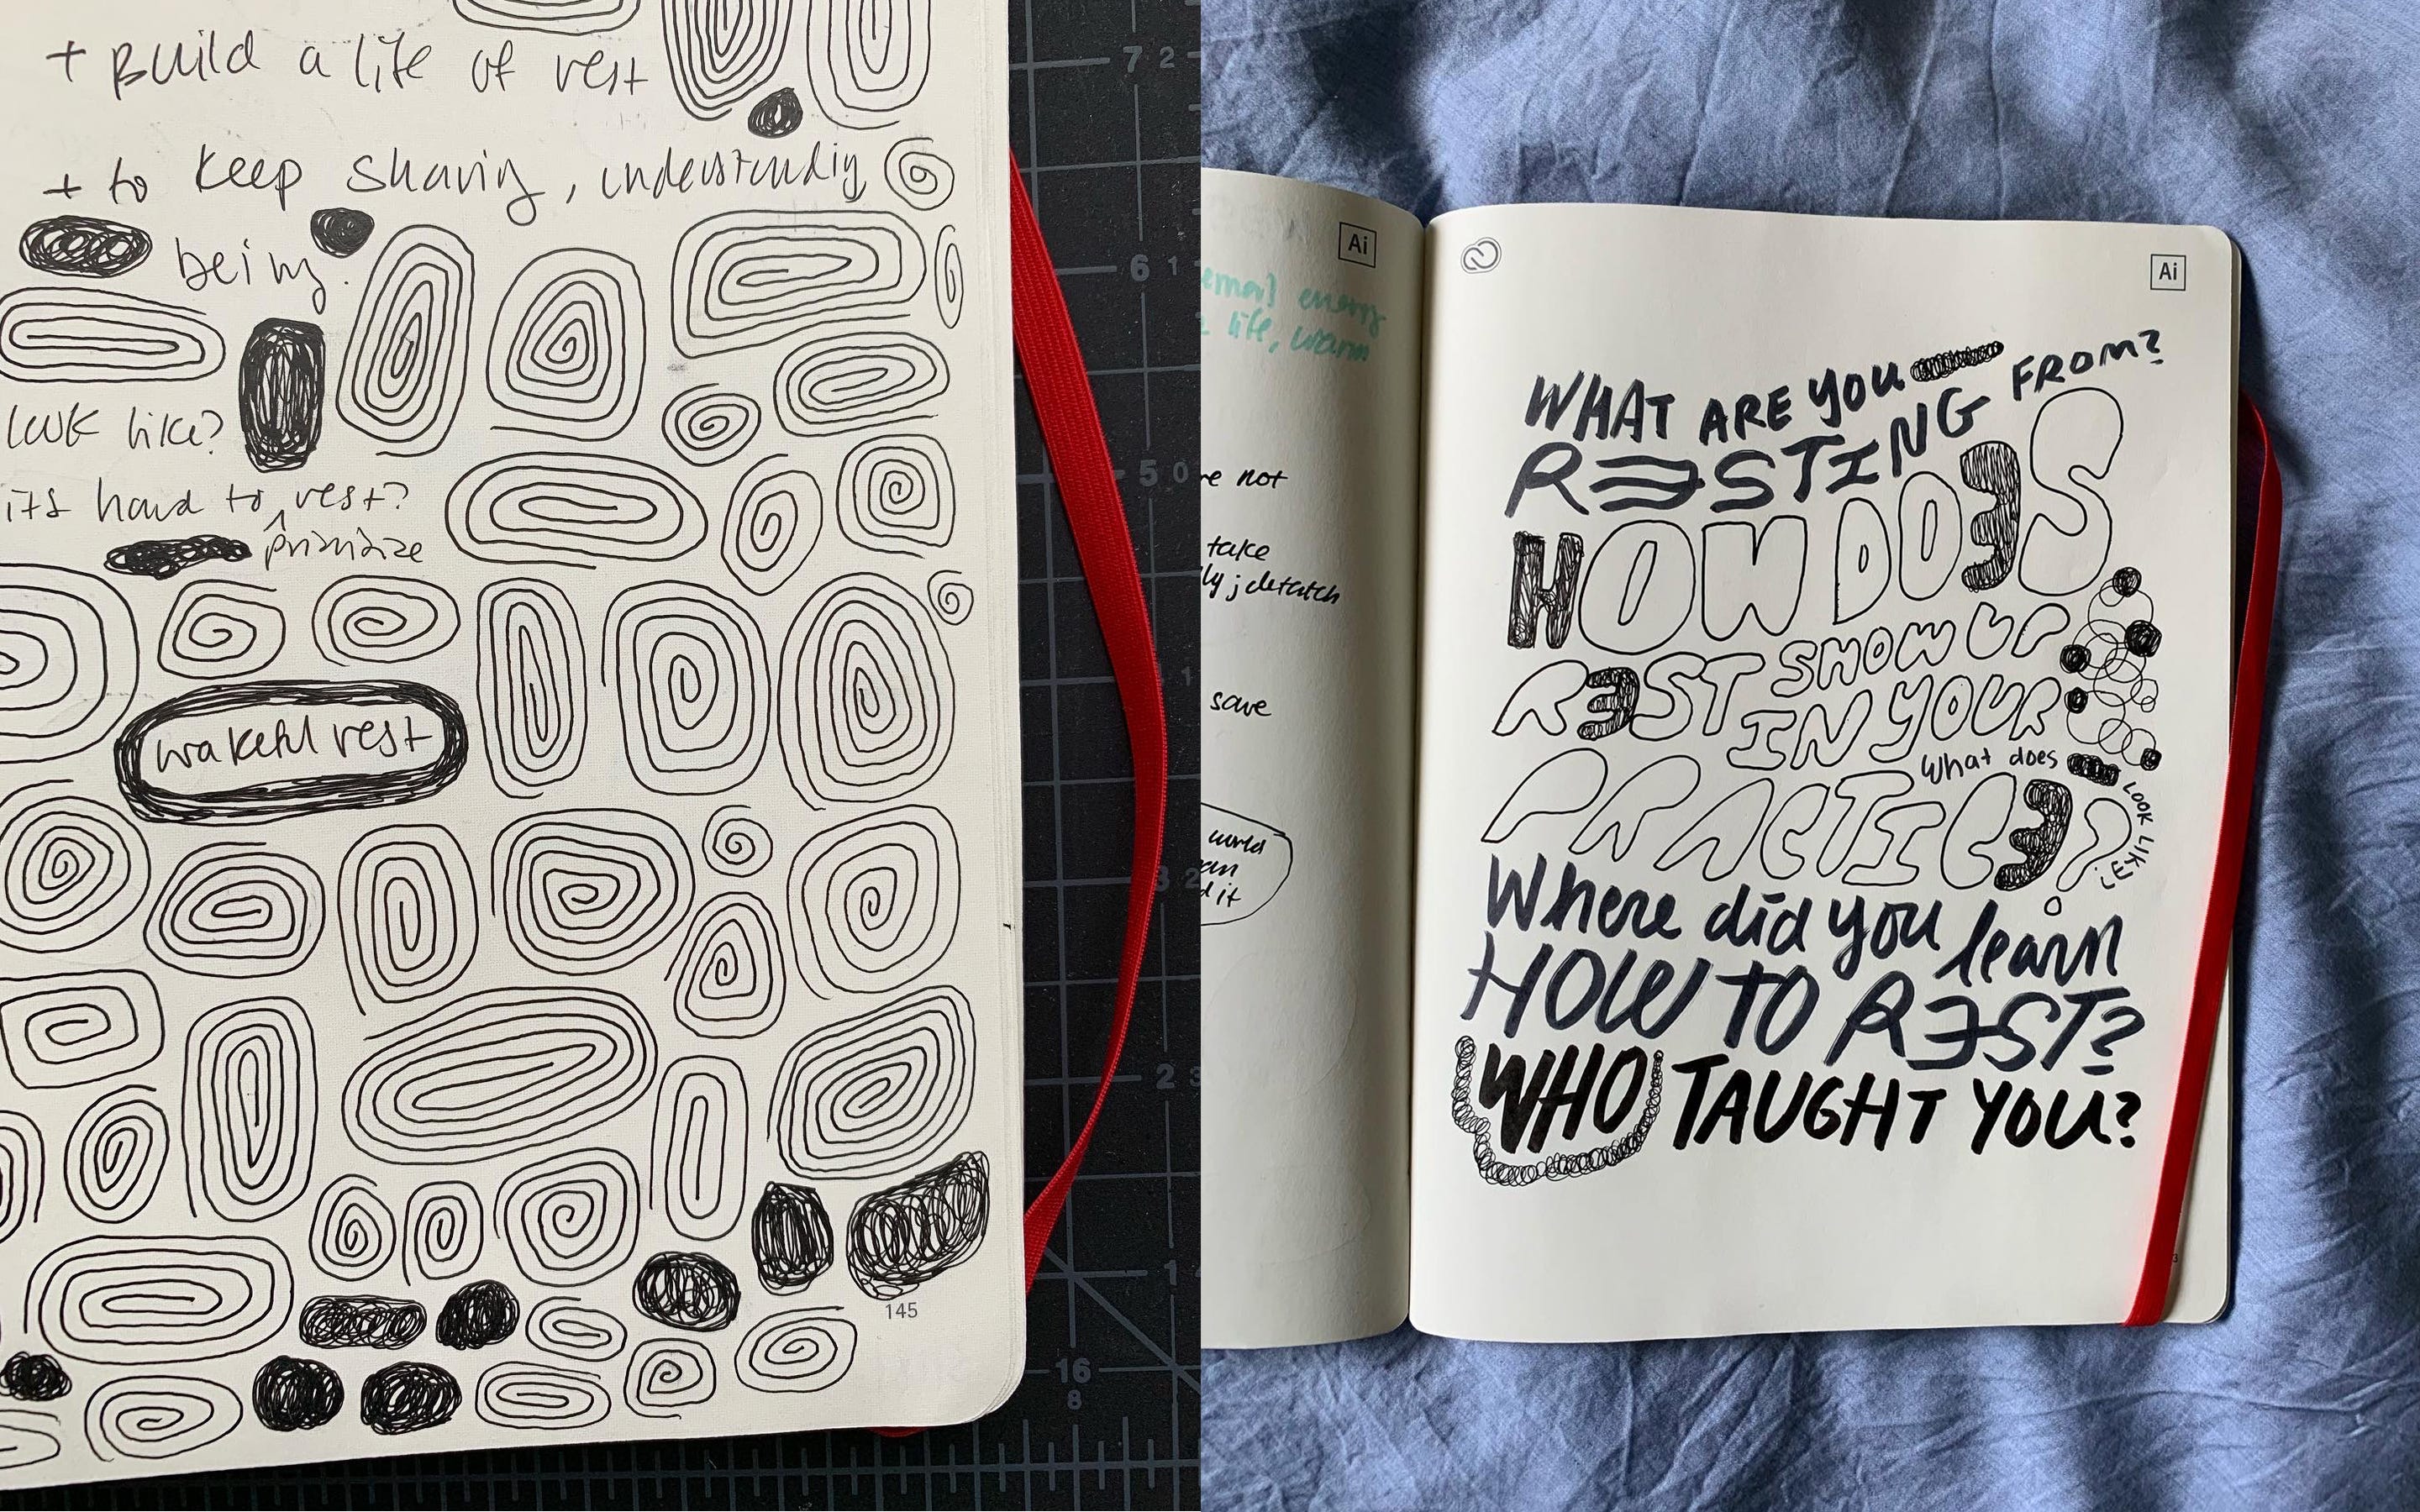 + Build a life of rest
+ to keep sharing, understanding
being.
look like?
its hard to rest?
prioritize
wakeful rest
145
7 2
6 1
5 0
1
3 2
2 3
1
16
8
Ai
energy
life, warm
not
take
ly; detatch
save
world
it
Ai
WHAT ARE YOU FROM?
RESTING
HOW DOES
REST SHOW UP
IN YOUR
What does
LOOK LIKE?
PRACTICE?
Where did you learn
HOW TO REST?
WHO TAUGHT YOU?